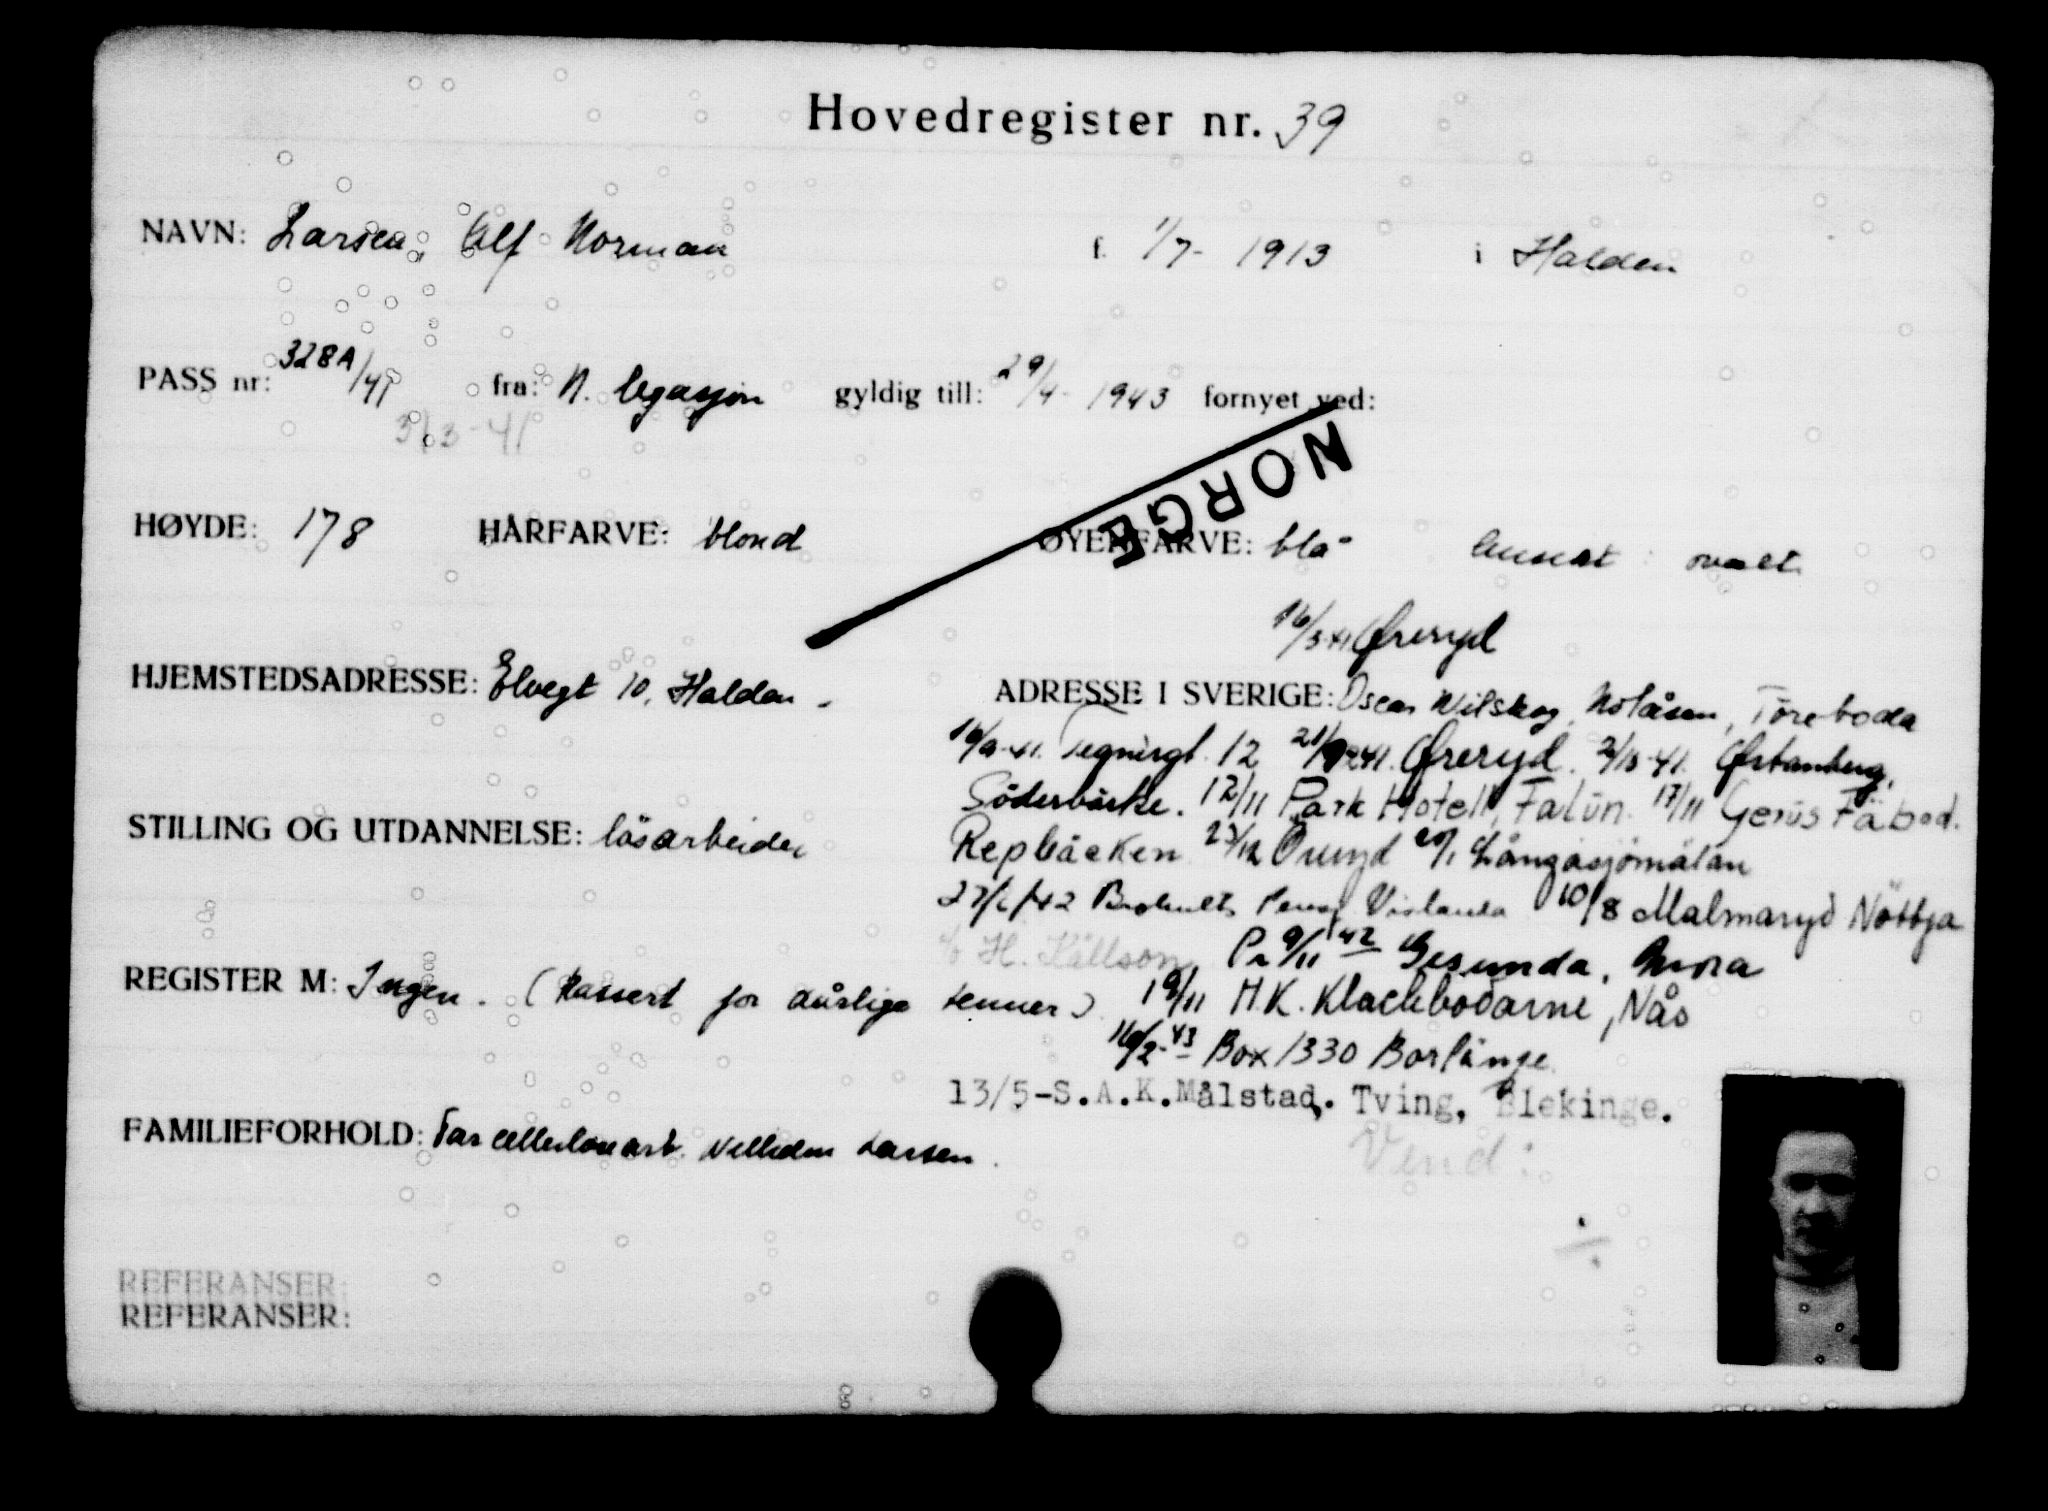 Hovedregister nr. 39
NAVN: Larsen, Alf Norman f. 1/7- 1913 i Halden
PASS nr: 328A/41 fra: N. legasjon gyldig till: 29/4- 1943 fornyet ved:
3/3-41
NORGE
HØYDE: 178 HÅRFARVE: blond ØYENFARVE: blå ansikt: ovalt
16/3-41 Øreryd
HJEMSTEDSADRESSE: Elvegt 10, Halden. ADRESSE I SVERIGE: Oscar Wilskog, Nolåsen, Töreboda
16/9-41. Tegnérgt. 12 Øreryd. Østanberg,
Söderbärke. 12/11 Park Hotell, Falun. 17/11 Gerus Fäbod.
STILLING OG UTDANNELSE: løsarbeider
Repbäcken 27/12 Öreryd 20/1 Långasjömålan
Vislanda 10/8 Malmaryd Nöttja
c/o H. Källson, 9/11 42 Gesunda, Mora
REGISTER M: Ingen. (Kassert for dårlige tenner). 19/11 H.K. Klackbodarne, Nås
16/2-43 Box 1330 Borlänge.
13/5-S.A.K.Målstad,. Tving, Blekinge.
FAMILIEFORHOLD: Far cellulosearb. Vilhelm Larsen.
Vend:
REFERANSER:
REFERANSER: